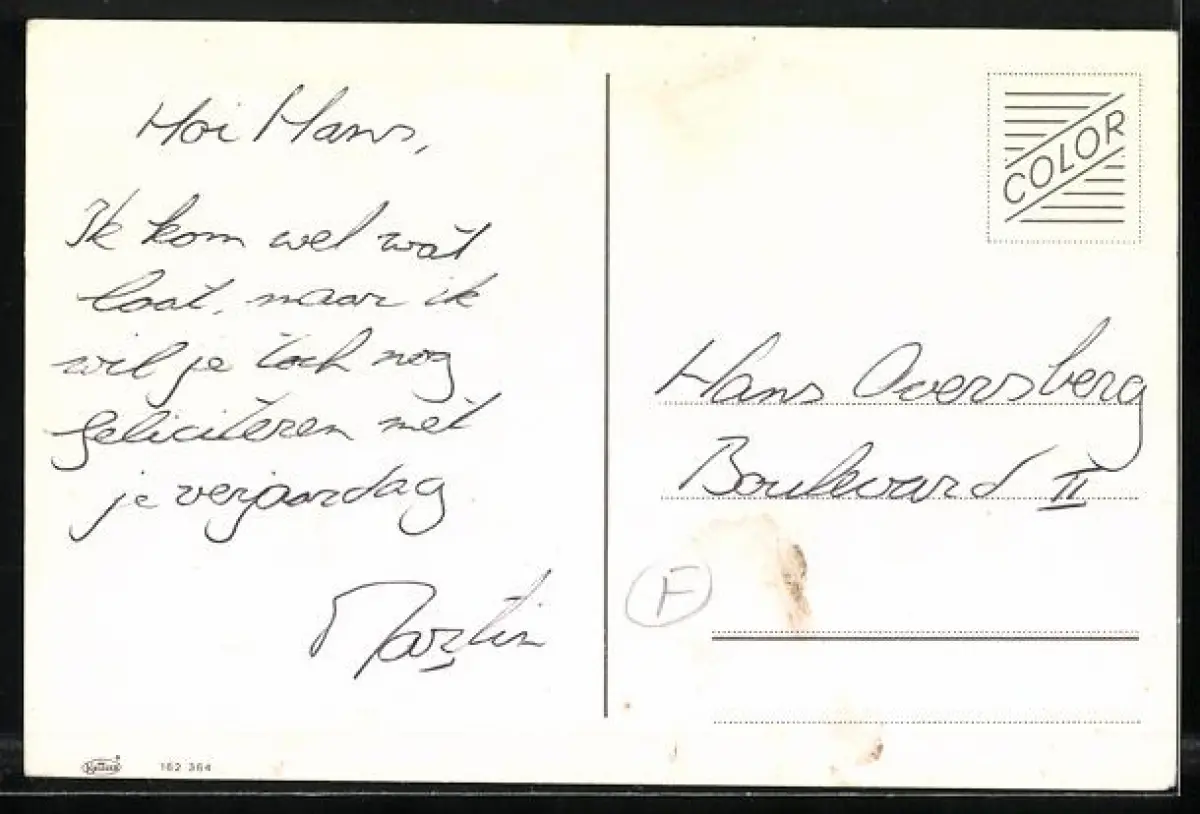 Hoi Hans,
Ik kom wel wat
laat, maar ik
wil je toch nog
feliciteren met
je verjaardag
Martin
162 364
COLOR
Hans Oversberg
Boulevard II
F